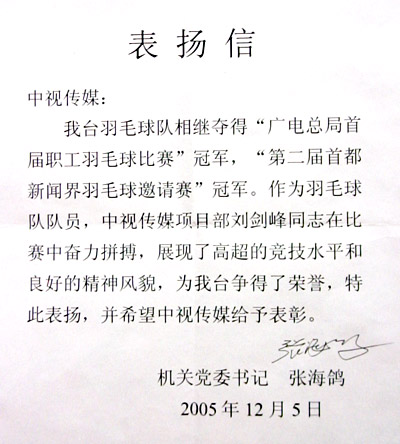 表扬信
中视传媒：
我台羽毛球队相继夺得“广电总局首
届职工羽毛球比赛”冠军，“第二届首都
新闻界羽毛球邀请赛”冠军。作为羽毛球
队队员，中视传媒项目部刘剑峰同志在比
赛中奋力拼搏，展现了高超的竞技水平和
良好的精神风貌，为我台争得了荣誉，特
此表扬，并希望中视传媒给予表彰。
张海鸽
机关党委书记 张海鸽
2005年12月5日